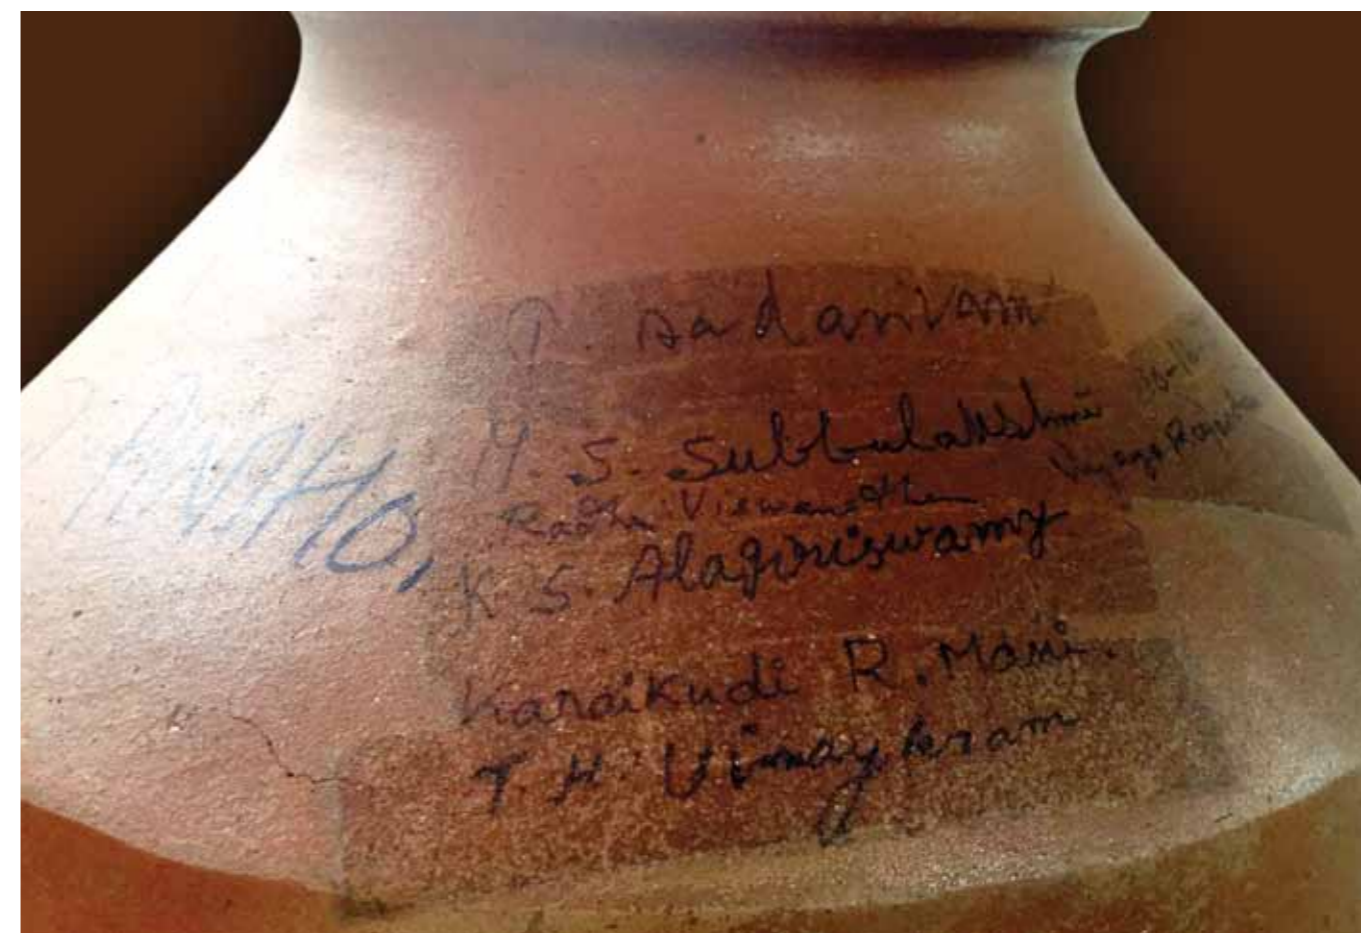 T. Sadasivam
M. S. Subbulakshmi
Radha Viswanathan
K S. Alagiriswamy
Karaikudi R. Mani.
T H Vinaykram